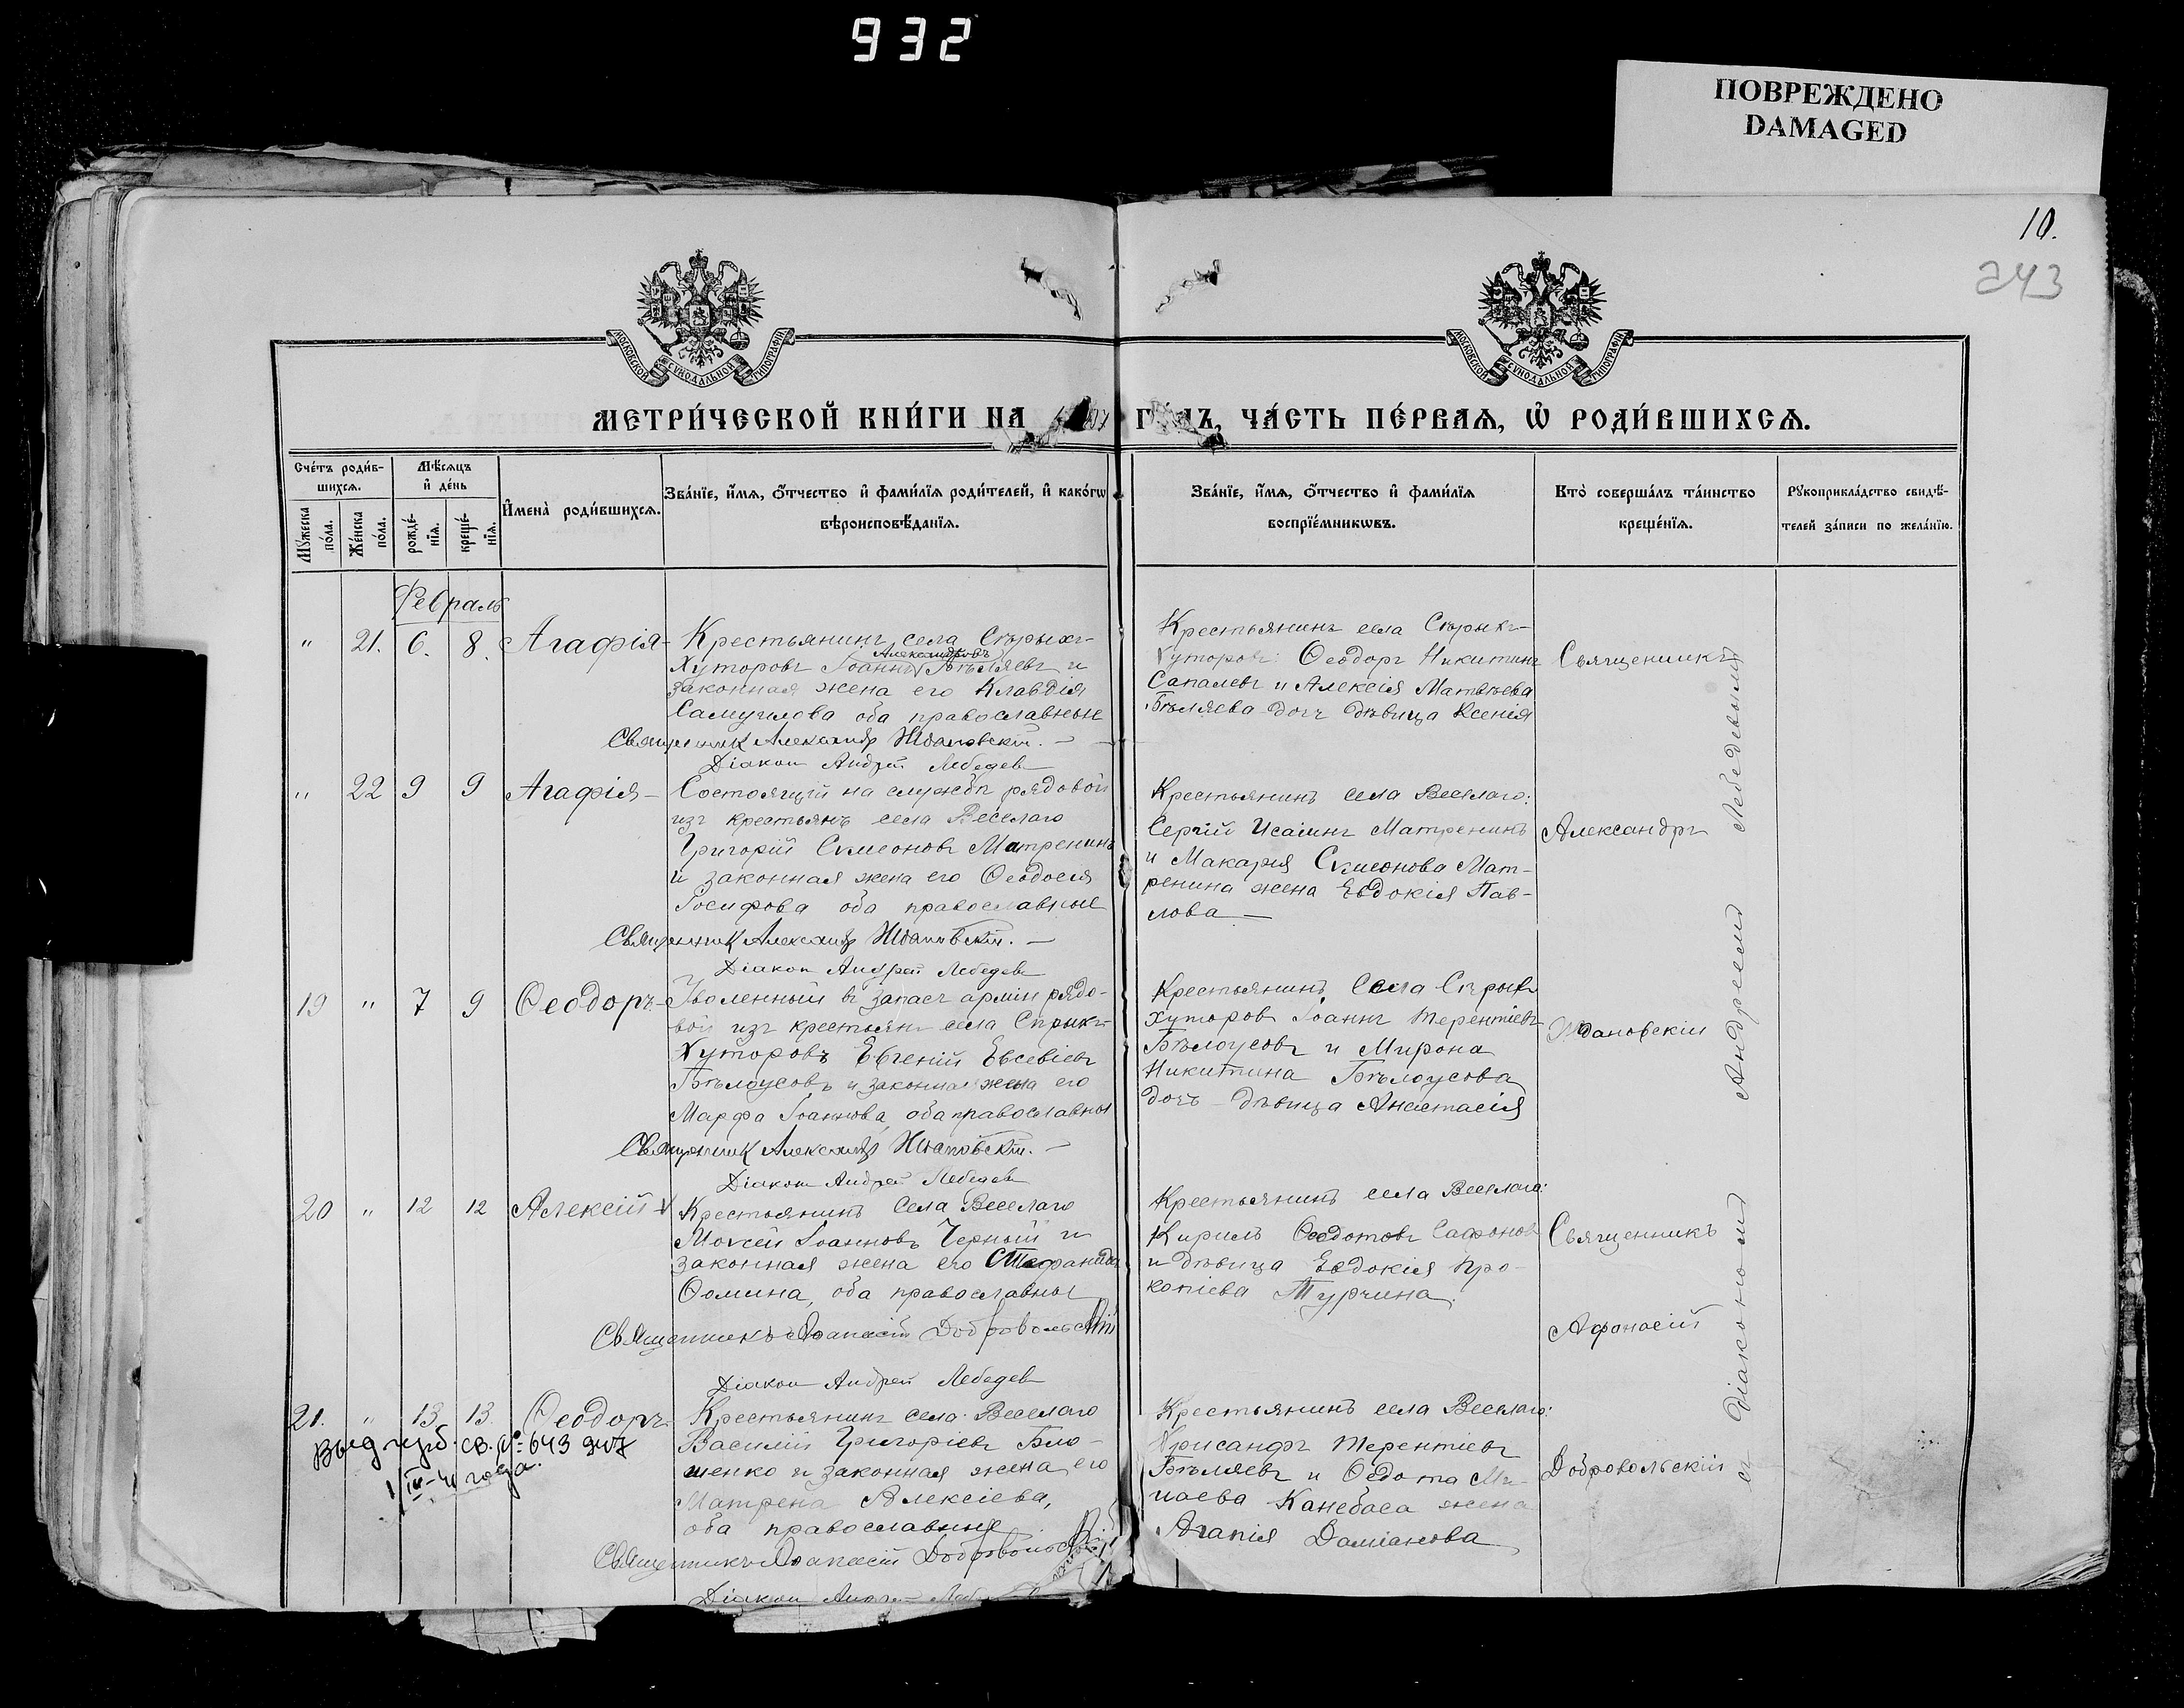 932
ПОВРЕЖДЕНО
DAMAGED
10.
243
МОСКОВСКОЙ СѴНОДАЛЬНОЙ ТИПОГРАФІИ
МОСКОВСКОЙ СѴНОДАЛЬНОЙ ТИПОГРАФІИ
МЕТРИ́ЧЕСКОЙ КНИ́ГИ НА ГО́ДЪ, ЧА́СТЬ ПЕ́РВАѦ, Ѽ РОДИ́ВШИХСѦ.
Сче́тъ роди́в-
шихсѧ.
Мѣ́сѧцъ
и҆ де́нь
Мꙋ́жеска
по́ла.
Же́нска
по́ла.
рожде́-
нїѧ.
креще́-
нїѧ.
И҆мена̀ роди́вшихсѧ.
Зва́нїе, и҆́мѧ, ѻ҆́тчество и҆ фами́лїѧ роди́телей, и҆ како́гѡ
вѣроисповѣ́данїѧ.
Зва́нїе, и҆́мѧ, ѻ҆́тчество и҆ фами́лїѧ
воспрїе́мникѡвъ.
Кто̀ соверша́лъ та́инство
креще́нїѧ.
Рꙋкоприкла́дство свидѣ́-
телей за́писи по жела́нїю.
Февраль
" 21. 6. 8. Агафія - Крестьянинъ села Сѣрыхъ-
Александровъ
Хуторовъ Іоаннъ Бѣляевъ и
законная жена его Клавдія
Самуилова оба православные
Священникъ Александръ Ждановскій. -
Діаконъ Андрей Лебедевъ
Крестьянинъ села Сѣрыхъ-
Хуторовъ: Ѳеодоръ Никитинъ
Сапалевъ и Алексія Матвѣева
Бѣляева дочь дѣвица Ксенія
Священникъ
" 22 9 9 Агафія - Состоящій на службѣ рядовой
изъ крестьянъ села Веселаго
Григорій Сѵмеоновъ Матренинъ
и законная жена его Ѳеодосія
Іосифова оба православные
Священникъ Александръ Ждановскій. -
Діаконъ Андрей Лебедевъ
Крестьянинъ села Веселаго:
Сергій Исаіинъ Матренинъ
и Макарія Сѵмеонова Мат-
ренина жена Евдокія Пав-
лова -
Александръ
19 " 7 9 Ѳеодоръ - Уволенный въ запасъ арміи рядо-
вой изъ крестьянъ села Сѣрыхъ
Хуторовъ Евгеній Евсевіевъ
Бѣлоусовъ и законная жена его
Марфа Іоаннова, оба православные
Священникъ Александръ Ждановскій. -
Діаконъ Андрей Лебедевъ
Крестьянинъ села Сѣрыхъ
Хуторовъ Іоаннъ Терентіевъ
Бѣлоусовъ и Мирона
Никитина Бѣлоусова
дочь дѣвица Анастасія
Ждановскій
20 " 12 12 Алексій Крестьянинъ села Веселаго
Моѵсей Іоанновъ Черный и
законная жена его Стефанида
Ѳомина, оба православные
Священникъ Аѳанасій Добровольскій
Діаконъ Андрей Лебедевъ
Крестьянинъ села Веселаго:
Кирилъ Ѳеодотовъ Сафоновъ
и дѣвица Евдокія Про-
копіева Турчина.
Священникъ
Афонасій
21. " 13 13. Ѳеодоръ Крестьянинъ села Веселаго
Василій Григоріевъ
и законная жена его
Матрена Алексіева,
оба православные
Священникъ Аѳанасій Добровольскій
Діаконъ Андрей
Крестьянинъ села Веселаго:
Хрисанфъ Терентіевъ
Бѣляевъ и Ѳедота Ми-
наева жена
Агапія Даміанова
Добровольскій
съ діакономъ Андреемъ Лебедевымъ
св. № 643
года.